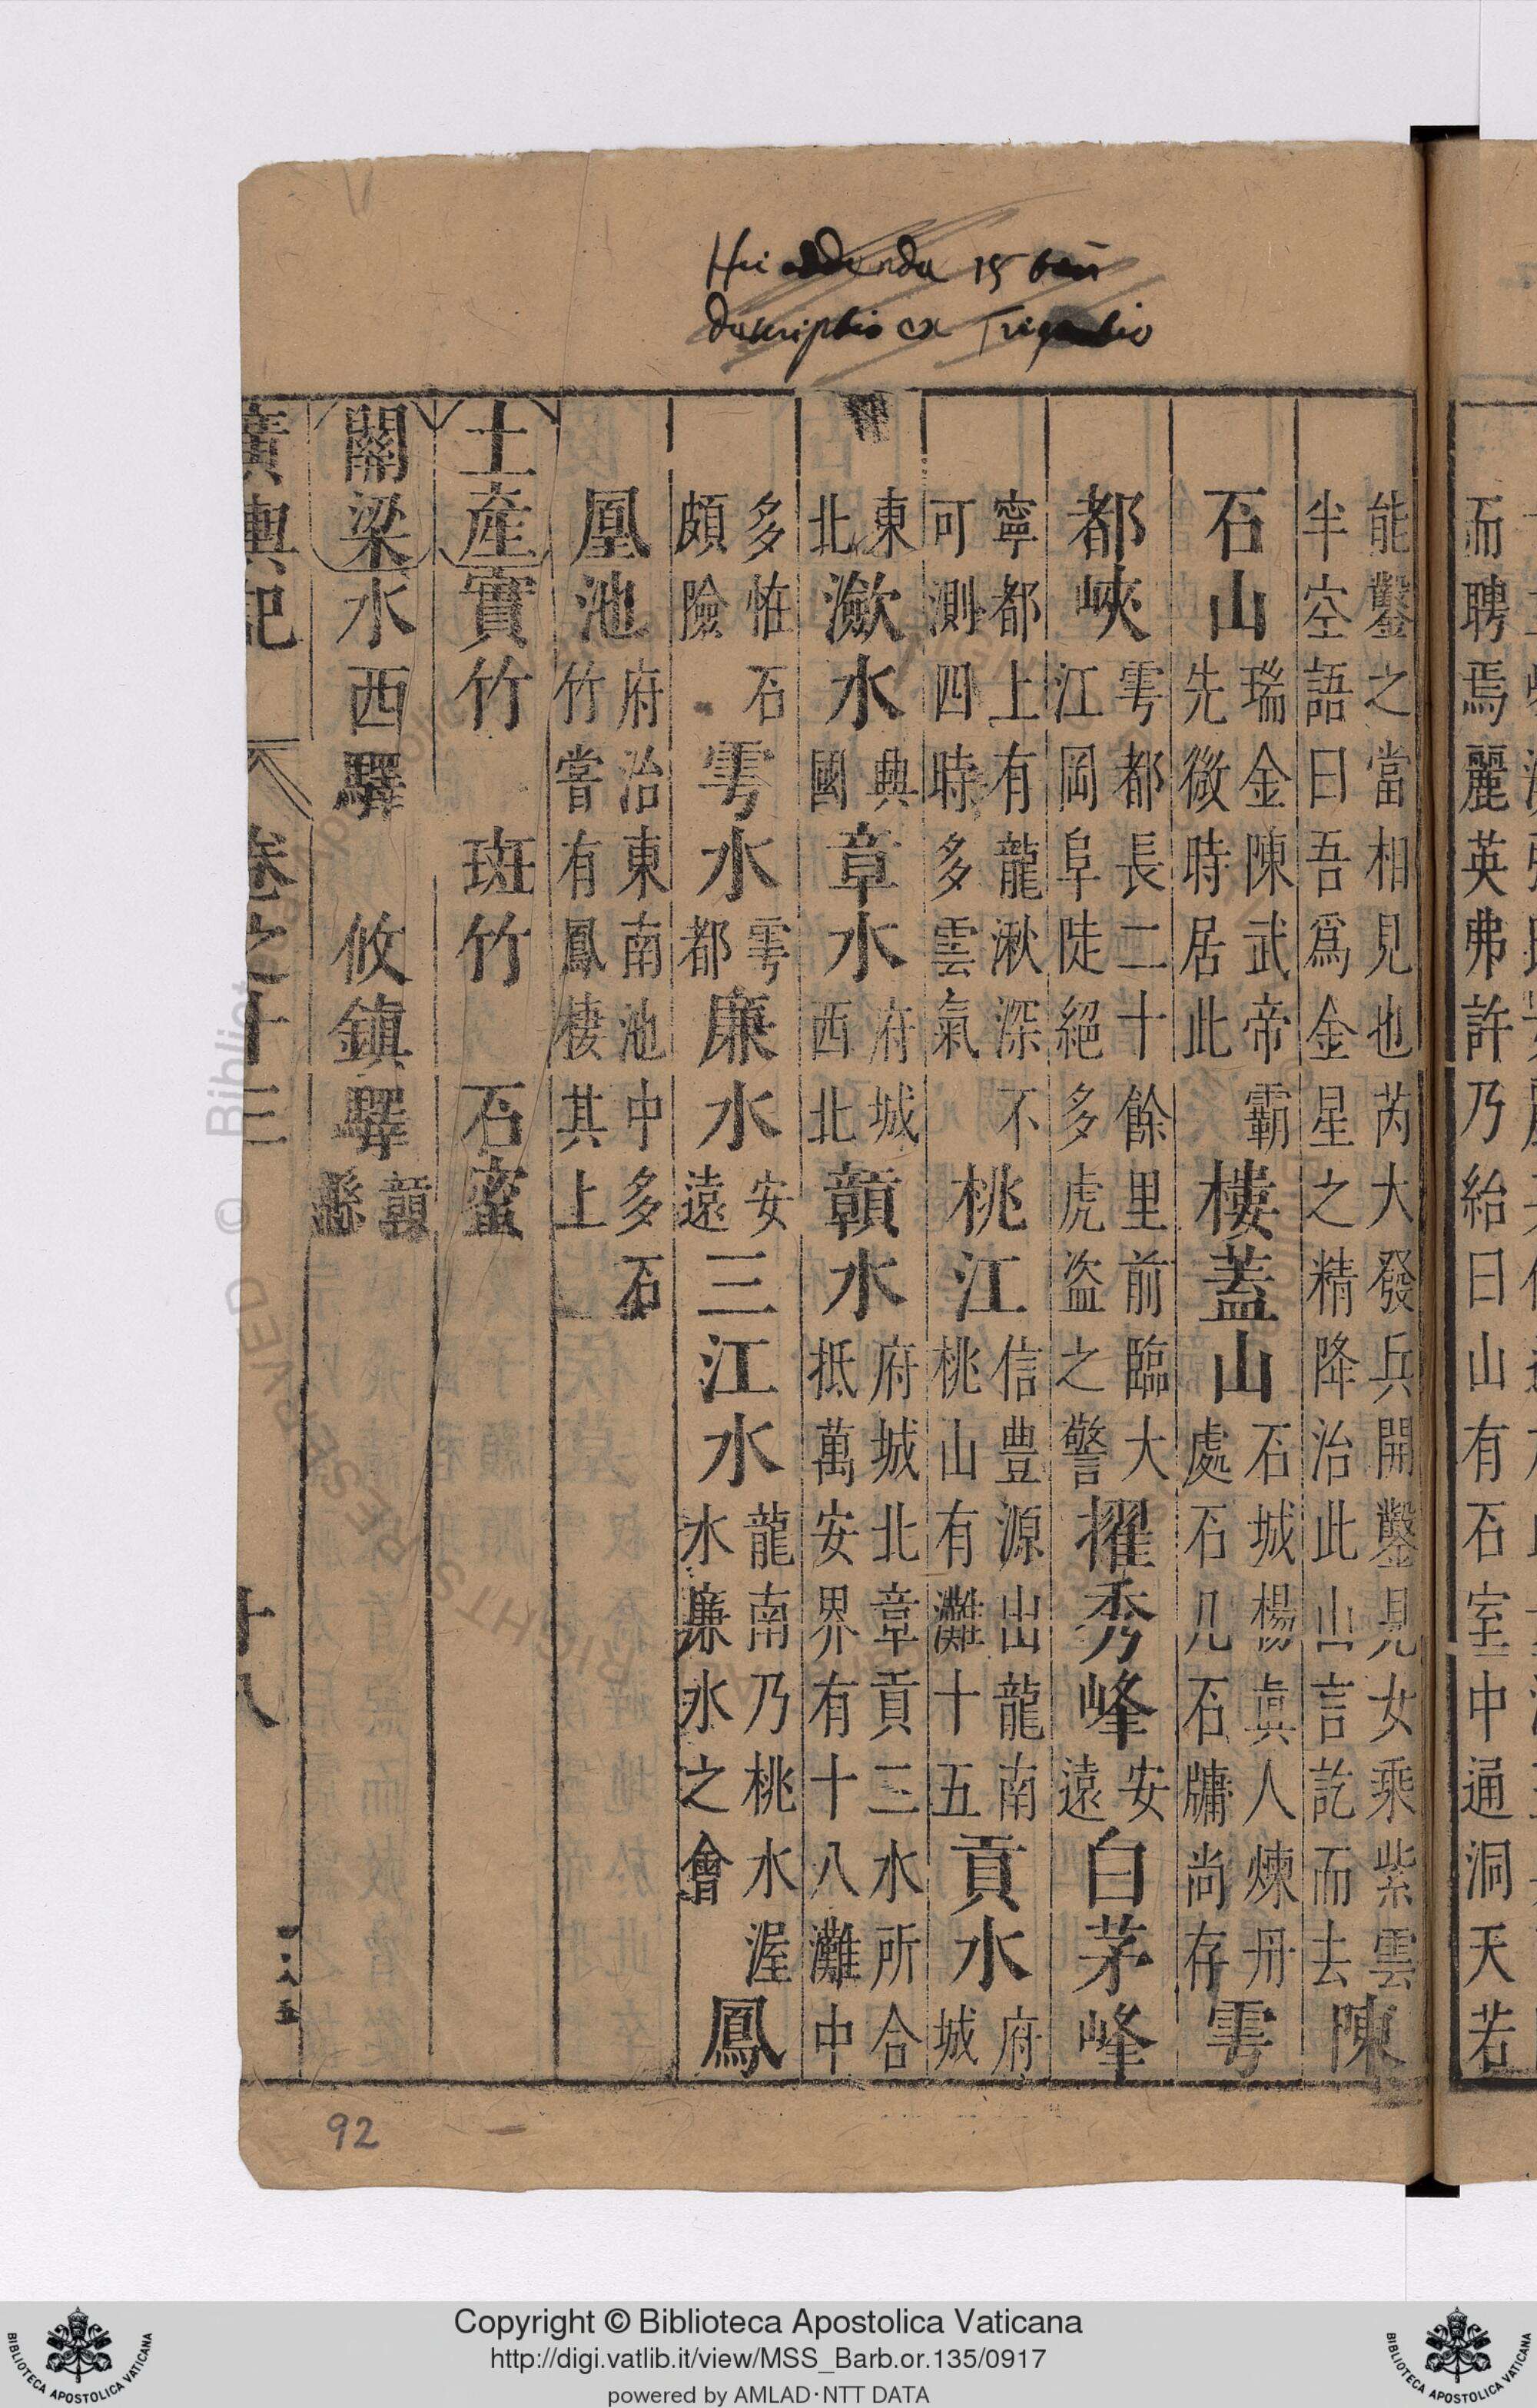 Hic addenda 15
descriptio ex Trigautio
能鑿之當相見也芮大發兵開鑿見女乘紫雲
半空語曰吾爲金星之精降治此山言訖而去 陳
石山 瑞金陳武帝霸先微時居此 樓葢山 石城楊眞人煉丹處石几石牗尚存 雩
都峽 雩都長二十餘里前臨大江岡阜陡絕多虎盗之警 擢秀峰 安遠 白茅峰
寧都上有龍湫深不可測四時多雲氣 桃江 信豊源出龍南桃山有灘十五 貢水 府城
東北 瀲水 興國 章水 府城西北 贛水 府城北章貢三水所合抵萬安界有十八灘中
多恠石頗險 雩水 雩都 廉水 安遠 三江水 龍南乃桃水渥水廉水之會 鳳
凰池 府治東南池中多石竹嘗有鳳棲其上
土產 實竹 斑竹 石蜜
關梁 水西驛 攸鎮驛 贛縣
廣輿記 卷之十三 十八
而聘焉麗英弗許乃紿曰山有石室中通洞天若
92
Copyright © Biblioteca Apostolica Vaticana
http://digi.vatlib.it/view/MSS_Barb.or.135/0917
powered by AMLAD·NTT DATA
BIBLIOTECA APOSTOLICA VATICANA
BIBLIOTECA APOSTOLICA VATICANA